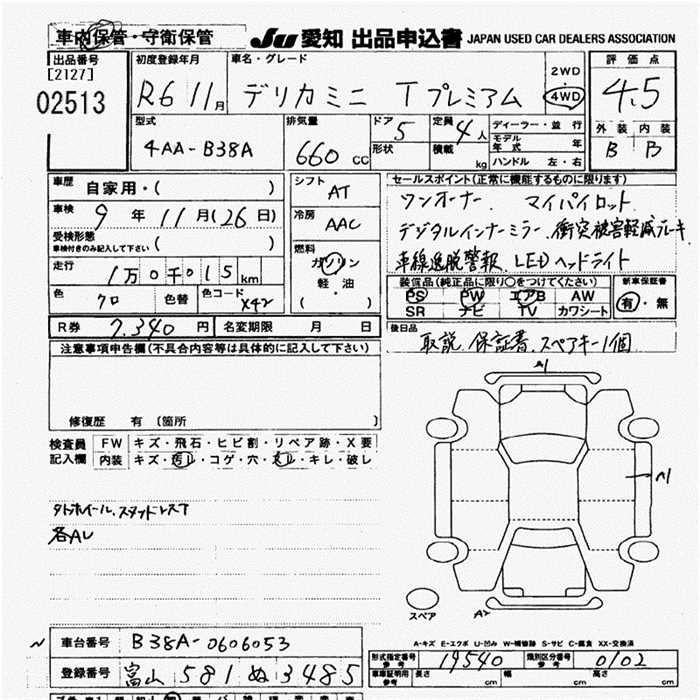 車内保管・守衛保管
JU 愛知 出品申込書 JAPAN USED CAR DEALERS ASSOCIATION
出品番号
[2127]
02513
初度登録年月
R6 11月
車名・グレード
デリカミニ Tプレミアム
2WD
4WD
評価点
4.5
外装 内装
B B
型式
4AA-B38A
排気量
660 CC
ドア 5
形状
定員 4人
積載 kg
ディーラー・並行
モデル年式 年
ハンドル 左・右
車歴 自家用・( )
車検 9年 11月(26日)
受検形態
車検付きのみ記入して下さい ( )
走行 1万0千015km
色 クロ 色替 色コード X42
シフト AT
冷房 AAC
燃料
ガソリン
軽・油
( )
セールスポイント(正常に機能するものに限ります)
ワンオーナー、マイパイロット
デジタルインナーミラー、衝突被害軽減ブレーキ
車線逸脱警報、LEDヘッドライト
装備品(純正品に限り○をつけてください)
PS PW エアB AW
SR ナビ TV カワシート
新車保証書
有・無
R券 7,340円 名変期限 月 日
後日品
取説、保証書、スペアキー1個
注意事項申告欄(不具合内容等は具体的に記入して下さい)
修復歴 有 〔箇所 〕
検査員記入欄
FW キズ・飛石・ヒビ割・リペア跡・X要
内装 キズ・汚レ・コゲ・穴・スレ・キレ・破レ
タトホイール、スタッドレスT
各AU
A1
A1
スペア
A2
A-キズ E-エクボ U-凹み W-補修跡 S-サビ C-腐食 XX-交換済
車台番号 B38A-0606053
登録番号 富山 581 ぬ 3485
形式指定番号 参考 19540 類別区分番号 参考 0102
車庫証明用 参考 長さ cm 幅 cm 高さ cm